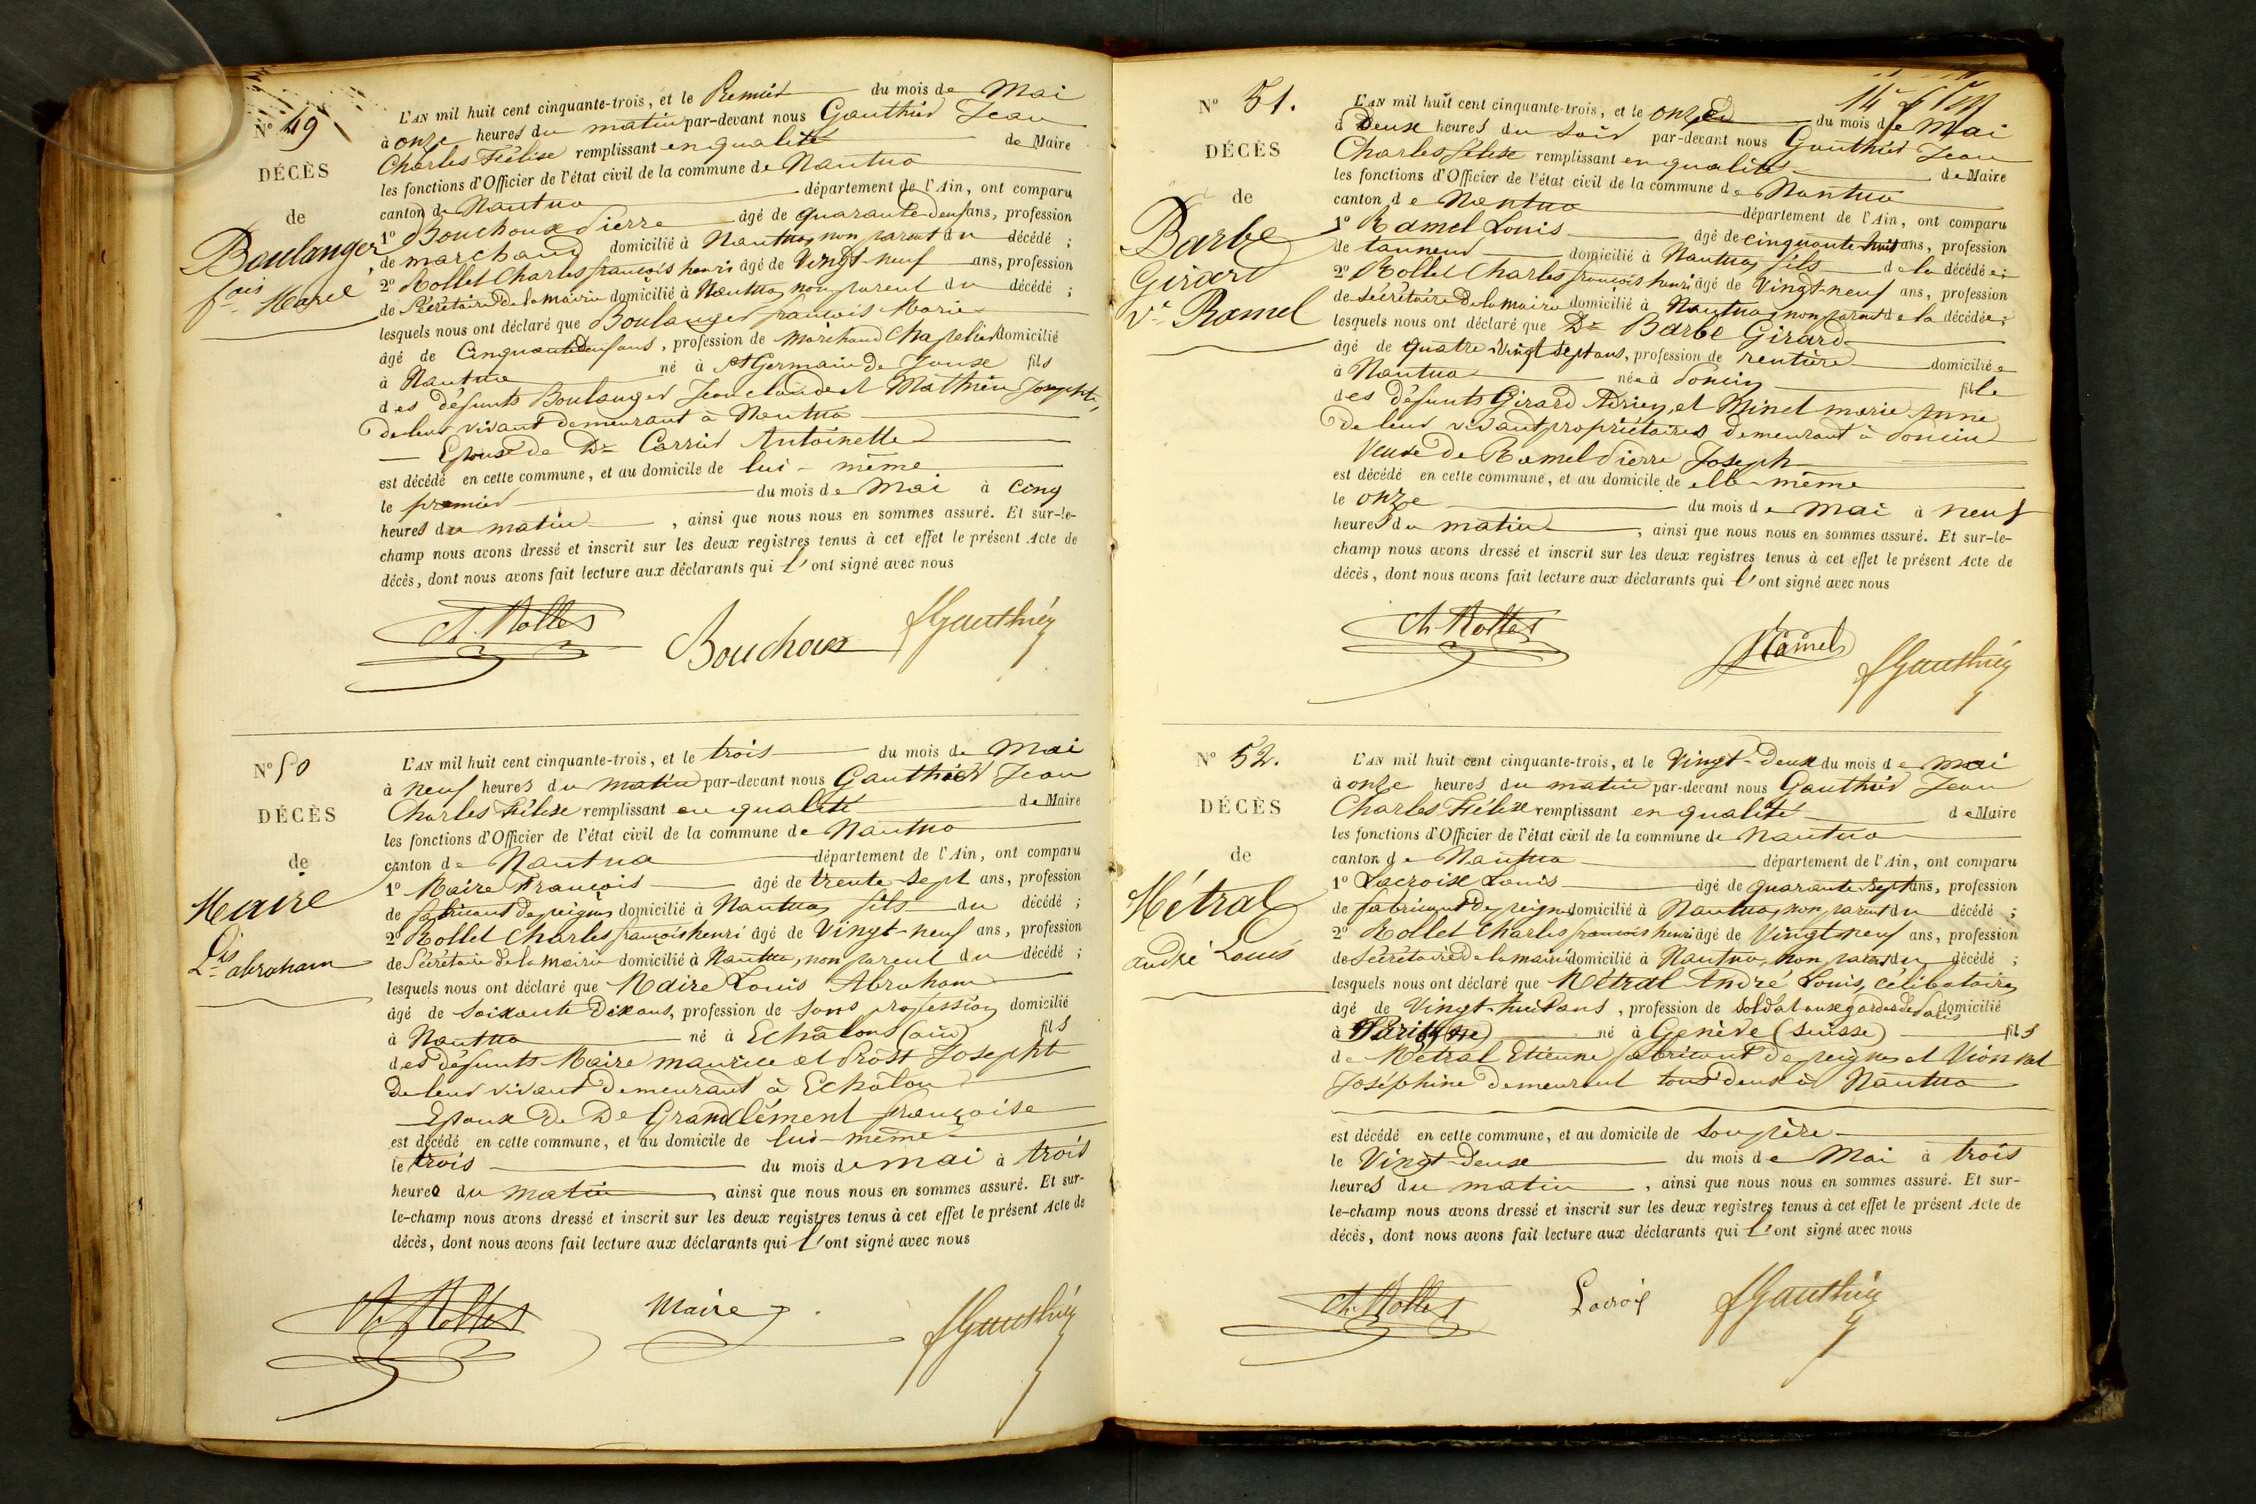 N° 49
DÉCÈS
de
Boulanger
fois Marie
L'AN mil huit cent cinquante-trois, et le Premier du mois de Mai
à onze heures du matin par-devant nous Gauthier Jean
Charles Félise remplissant en qualité de Maire
les fonctions d'Officier de l'état civil de la commune de Nantua
canton de Nantua département de l'Ain, ont comparu
1° Bouchoux Pierre âgé de quarante deux ans, profession
de marchand domicilié à Nantua, non parent du décédé ;
2° Rollet Charles françois henri âgé de Vingt-neuf ans, profession
de Sécrétaire de la mairie domicilié à Nantua, non parent du décédé ;
lesquels nous ont déclaré que Boulanger françois Marie
âgé de Cinquante deux ans, profession de Marchand Chapelier domicilié
à Nantua né à St Germain de Joux fils
des défunts Boulanger Jean claude et Mathieu Josephte,
de leur vivant demeurant à Nantua
Epoux de De Carrier Antoinette
est décédé en cette commune, et au domicile de lui-même
le premier du mois de Mai à cinq
heures du matin, ainsi que nous nous en sommes assuré. Et sur-le-
champ nous avons dressé et inscrit sur les deux registres tenus à cet effet le présent Acte de
décès, dont nous avons fait lecture aux déclarants qui l'ont signé avec nous
Ch. Rollet Bouchoux fGauthier
N° 50
DÉCÈS
de
Maire
Lis abraham
L'AN mil huit cent cinquante-trois, et le trois du mois de Mai
à neuf heures du matin par-devant nous Gauthier Jean
Charles Félise remplissant en qualité de Maire
les fonctions d'Officier de l'état civil de la commune de Nantua
canton de Nantua département de l'Ain, ont comparu
1° Maire François âgé de trente-sept ans, profession
de fabricant de peignes domicilié à Nantua, fils du décédé ;
2° Rollet Charles françois henri âgé de Vingt-neuf ans, profession
de Sécrétaire de la mairie domicilié à Nantua, non parent du décédé ;
lesquels nous ont déclaré que Maire Louis Abraham
âgé de soixante Dix ans, profession de sans profession domicilié
à Nantua né à Echâlons (ain) fils
des défunts Maire maurice et Prost Josephte
de leur vivant demeurant à Echâlon
Epoux de De Grandclément françoise
est décédé en cette commune, et au domicile de lui-même
le trois du mois de mai à trois
heures du matin, ainsi que nous nous en sommes assuré. Et sur-
le-champ nous avons dressé et inscrit sur les deux registres tenus à cet effet le présent Acte de
décès, dont nous avons fait lecture aux déclarants qui l'ont signé avec nous
Ch. Rollet Maire fGauthier
N° 51.
DÉCÈS
de
Barbe
Girard
Ve Ramel
L'AN mil huit cent cinquante-trois, et le onze du mois de Mai
à Deux heures du soir par-devant nous Gauthier Jean
Charles félise remplissant en qualité de Maire
les fonctions d'Officier de l'état civil de la commune de Nantua
canton de Nantua département de l'Ain, ont comparu
1° Ramel Louis âgé de cinquante-huit ans, profession
de tanneur domicilié à Nantua, fils de la décédée ;
2° Rollet Charles françois henri âgé de Vingt-neuf ans, profession
de Sécrétaire de la mairie domicilié à Nantua, non parent de la décédée ;
lesquels nous ont déclaré que De Barbe Girard
âgé de quatre Vingt sept ans, profession de rentière domiciliée
à Nantua née à Soncin fille
des défunts Girard Adrien, et Minet marie Anne
de leur vivant propriétaires demeurant à Soncin
Veuve de Ramel Pierre Joseph
est décédé en cette commune, et au domicile de elle-même
le onze du mois de Mai à neuf
heures du matin, ainsi que nous nous en sommes assuré. Et sur-le-
champ nous avons dressé et inscrit sur les deux registres tenus à cet effet le présent Acte de
décès, dont nous avons fait lecture aux déclarants qui l'ont signé avec nous
Ch. Rollet Ramel fGauthier
N° 52.
DÉCÈS
de
Métral
andré Louis
L'AN mil huit cent cinquante-trois, et le Vingt-Deux du mois de mai
à onze heures du matin par-devant nous Gauthier Jean
Charles Félise remplissant en qualité de Maire
les fonctions d'Officier de l'état civil de la commune de Nantua
canton de Nantua département de l'Ain, ont comparu
1° Lacroix Louis âgé de quarante-sept ans, profession
de fabricant de peignes domicilié à Nantua, non parent du décédé ;
2° Rollet Charles francois henri âgé de Vingt neuf ans, profession
de Sécrétaire de la mairie domicilié à Nantua, non parent du décédé ;
lesquels nous ont déclaré que Métral André Louis, célibataire,
âgé de Vingt-huit ans, profession de soldat aux gardes de Paris domicilié
à Paris né à Genève (suisse) fils
de Métral Etienne fabricant de peignes et Vionnet
Joséphine demeurant tous deux à Nantua
est décédé en cette commune, et au domicile de son père
le Vingt-Deux du mois de Mai à trois
heures du matin, ainsi que nous nous en sommes assuré. Et sur-
le-champ nous avons dressé et inscrit sur les deux registres tenus à cet effet le présent Acte de
décès, dont nous avons fait lecture aux déclarants qui l'ont signé avec nous
Ch. Rollet Lacroix fGauthier